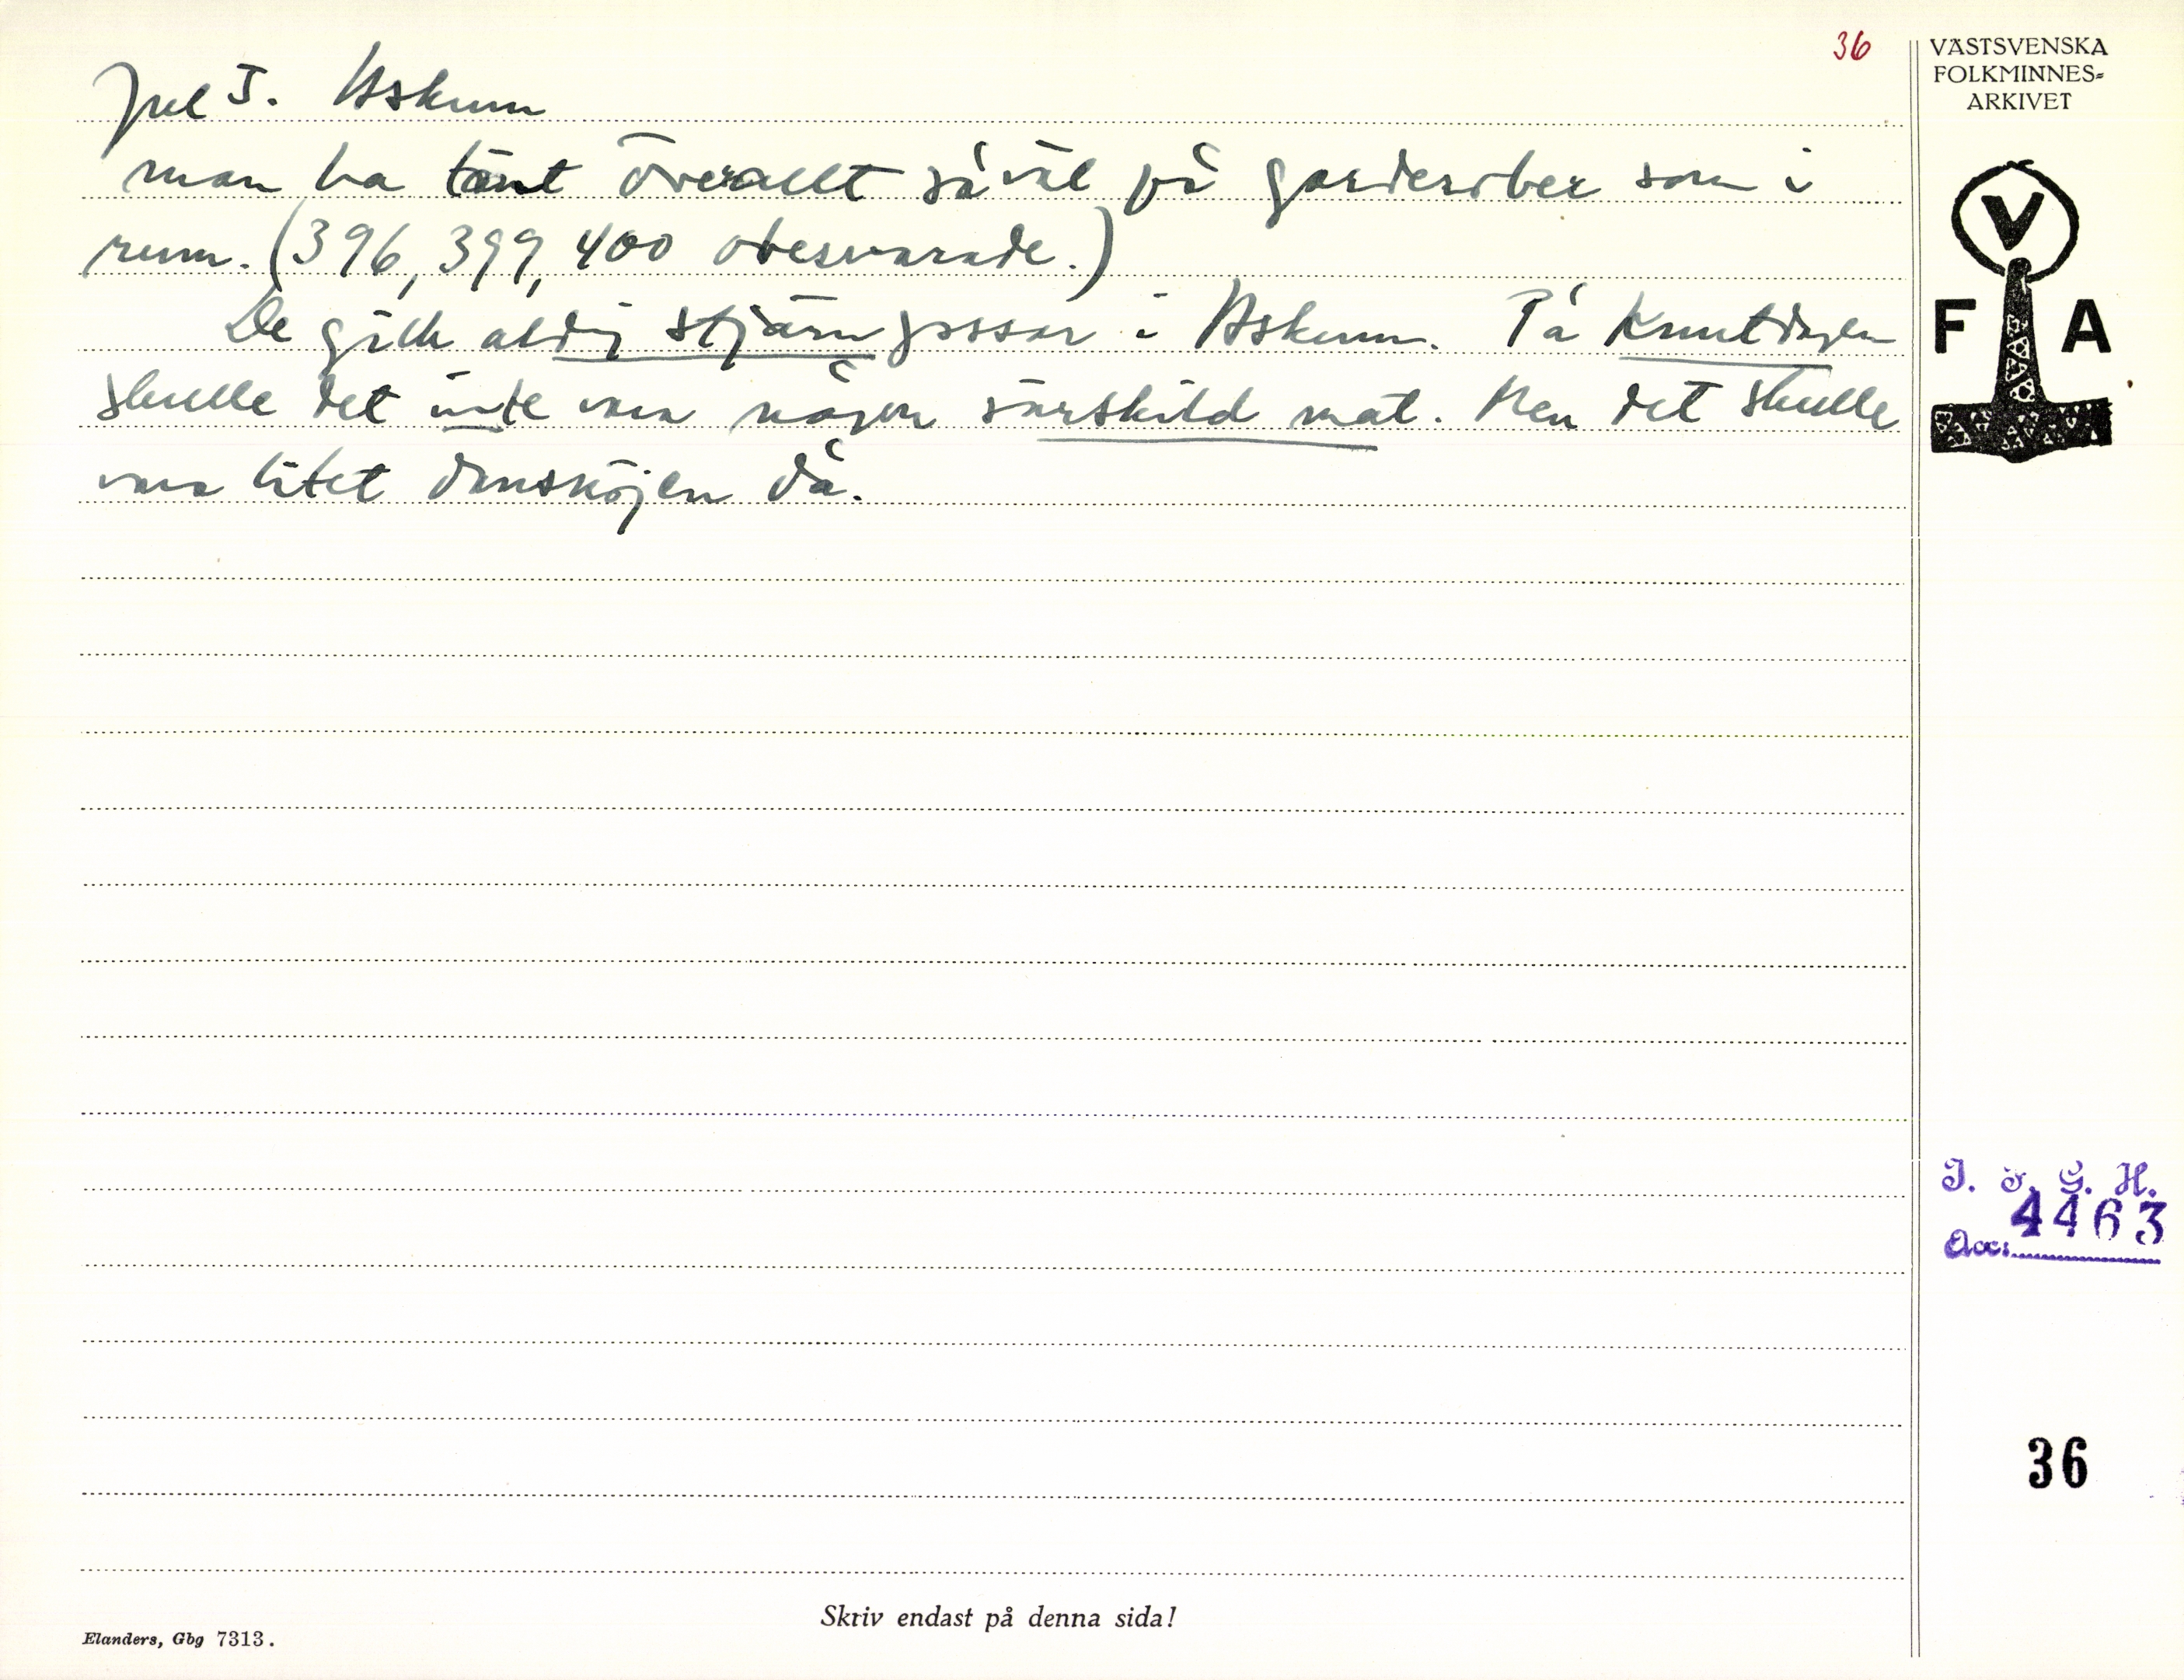 36
Jul I. Askum
man ha tänt överallt såväl på garderober som i
rum. (396, 399, 400 obesvarade.)
De gick aldrig stjärngossar i Askum. På Knutdagen
skulle det inte vara någon särskild mat. Men det skulle
vara litet dansnöjen då.
VÄSTSVENSKA
FOLKMINNES=
ARKIVET
V
F A
I. F. G. H.
Acc. 4463
36
Skriv endast på denna sida!
Elanders, Gbg 7313.